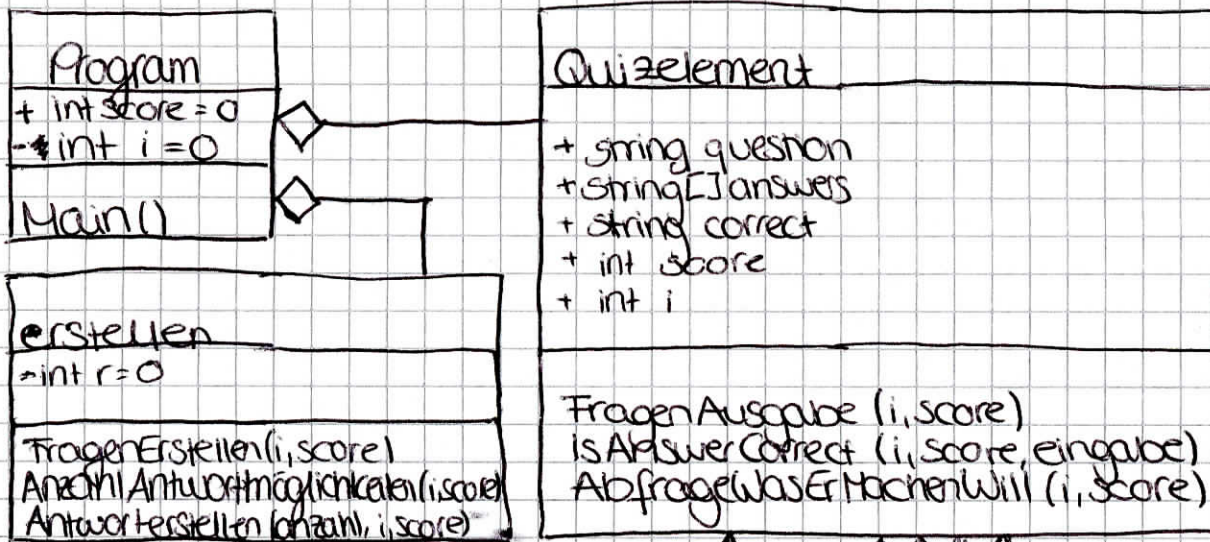 Program
+ int score = 0
- int i = 0
Main()
erstellen
- int r = 0
FragenErstellen(i, score)
AnzahlAntwortmöglichkeiten(i, score)
Antworterstellen (anzahl, i, score)
Quizelement
+ string question
+ string[] answers
+ string correct
+ int score
+ int i
FragenAusgabe (i, score)
isAnswerCorrect (i, score, eingabe)
AbfrageWasErMachenWill (i, score)